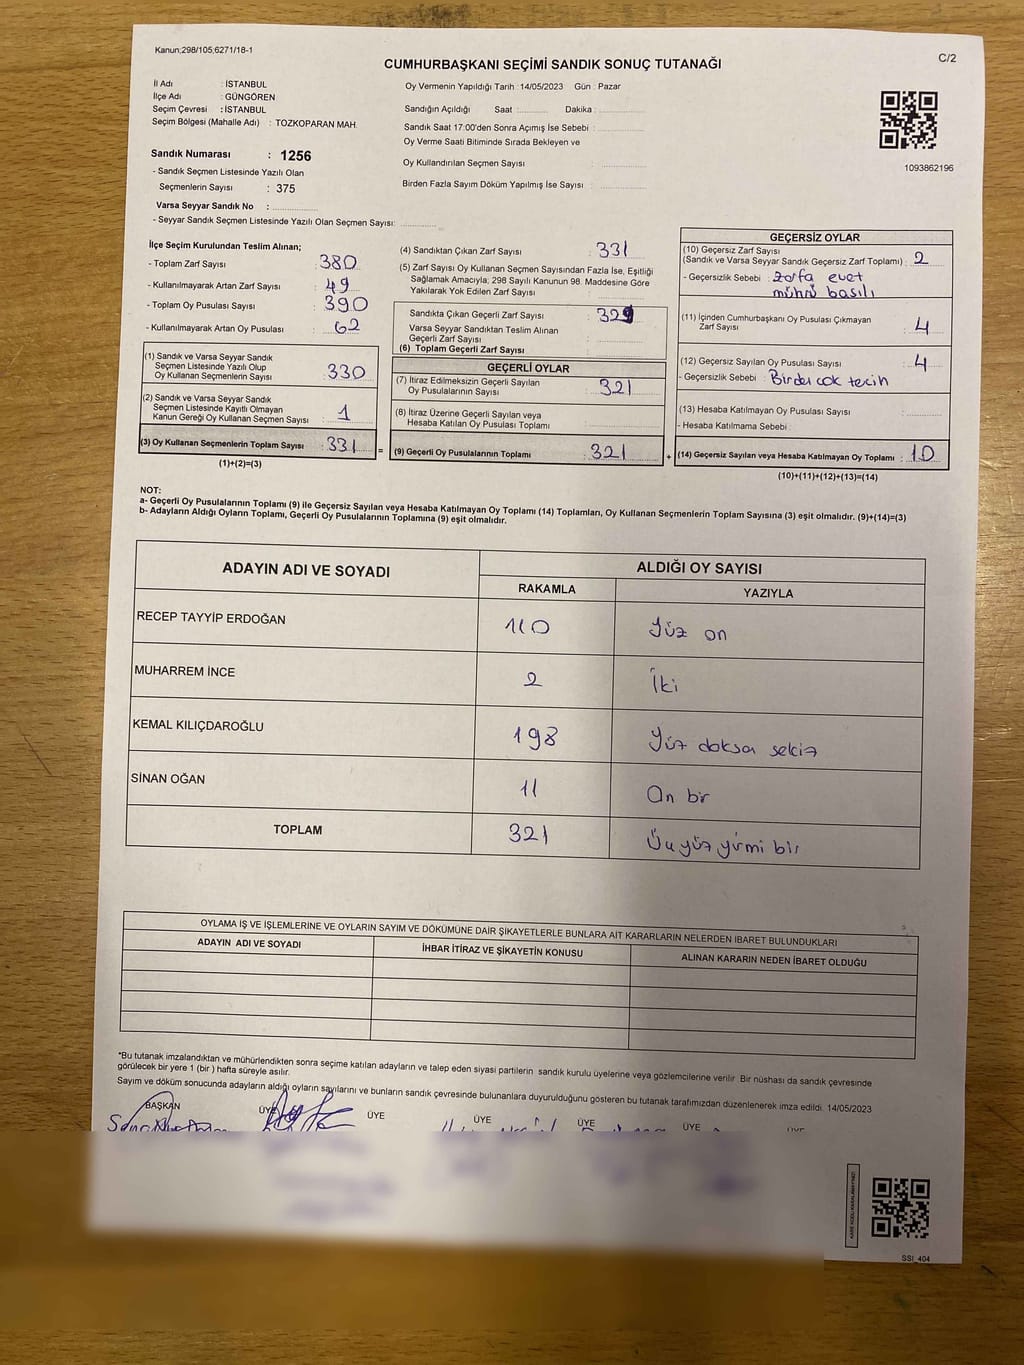 Kanun;298/105;6271/18-1
C/2
CUMHURBAŞKANI SEÇİMİ SANDIK SONUÇ TUTANAĞI
İl Adı : İSTANBUL
İlçe Adı : GÜNGÖREN
Seçim Çevresi : İSTANBUL
Seçim Bölgesi (Mahalle Adı) : TOZKOPARAN MAH.
Sandık Numarası : 1256
- Sandık Seçmen Listesinde Yazılı Olan
Seçmenlerin Sayısı : 375
Varsa Seyyar Sandık No :
- Seyyar Sandık Seçmen Listesinde Yazılı Olan Seçmen Sayısı:
Oy Vermenin Yapıldığı Tarih : 14/05/2023 Gün : Pazar
Sandığın Açıldığı Saat : Dakika :
Sandık Saat 17:00'den Sonra Açımış İse Sebebi :
Oy Verme Saati Bitiminde Sırada Bekleyen ve
Oy Kullandırılan Seçmen Sayısı :
Birden Fazla Sayım Döküm Yapılmış İse Sayısı :
1093862196
İlçe Seçim Kurulundan Teslim Alınan;
- Toplam Zarf Sayısı : 380
- Kullanılmayarak Artan Zarf Sayısı : 49
- Toplam Oy Pusulası Sayısı : 390
- Kullanılmayarak Artan Oy Pusulası : 62
(1) Sandık ve Varsa Seyyar Sandık
Seçmen Listesinde Yazılı Olup
Oy Kullanan Seçmenlerin Sayısı : 330
(2) Sandık ve Varsa Seyyar Sandık
Seçmen Listesinde Kayıtlı Olmayan
Kanun Gereği Oy Kullanan Seçmen Sayısı : 1
(3) Oy Kullanan Seçmenlerin Toplam Sayısı : 331 =
(1)+(2)=(3)
(4) Sandıktan Çıkan Zarf Sayısı : 331
(5) Zarf Sayısı Oy Kullanan Seçmen Sayısından Fazla İse, Eşitliği
Sağlamak Amacıyla; 298 Sayılı Kanunun 98. Maddesine Göre
Yakılarak Yok Edilen Zarf Sayısı :
Sandıkta Çıkan Geçerli Zarf Sayısı : 329
Varsa Seyyar Sandıktan Teslim Alınan
Geçerli Zarf Sayısı :
(6) Toplam Geçerli Zarf Sayısı :
GEÇERLİ OYLAR
(7) İtiraz Edilmeksizin Geçerli Sayılan
Oy Pusulalarının Sayısı : 321
(8) İtiraz Üzerine Geçerli Sayılan veya
Hesaba Katılan Oy Pusulası Toplamı :
(9) Geçerli Oy Pusulalarının Toplamı : 321 +
GEÇERSİZ OYLAR
(10) Geçersiz Zarf Sayısı
(Sandık ve Varsa Seyyar Sandık Geçersiz Zarf Toplamı) : 2
- Geçersizlik Sebebi : zarfa evet
mührü basılı
(11) İçinden Cumhurbaşkanı Oy Pusulası Çıkmayan
Zarf Sayısı : 4
(12) Geçersiz Sayılan Oy Pusulası Sayısı : 4
- Geçersizlik Sebebi : Birden çok tercih
(13) Hesaba Katılmayan Oy Pusulası Sayısı :
- Hesaba Katılmama Sebebi :
(14) Geçersiz Sayılan veya Hesaba Katılmayan Oy Toplamı : 10
(10)+(11)+(12)+(13)=(14)
NOT:
a- Geçerli Oy Pusulalarının Toplamı (9) ile Geçersiz Sayılan veya Hesaba Katılmayan Oy Toplamı (14) Toplamları, Oy Kullanan Seçmenlerin Toplam Sayısına (3) eşit olmalıdır. (9)+(14)=(3)
b- Adayların Aldığı Oyların Toplamı, Geçerli Oy Pusulalarının Toplamına (9) eşit olmalıdır.
ADAYIN ADI VE SOYADI
ALDIĞI OY SAYISI
RAKAMLA YAZIYLA
RECEP TAYYİP ERDOĞAN 110 Yüz on
MUHARREM İNCE 2 İki
KEMAL KILIÇDAROĞLU 198 Yüz doksan sekiz
SİNAN OĞAN 11 On bir
TOPLAM 321 Üçyüz yirmi bir
OYLAMA İŞ VE İŞLEMLERİNE VE OYLARIN SAYIM VE DÖKÜMÜNE DAİR ŞİKAYETLERLE BUNLARA AİT KARARLARIN NELERDEN İBARET BULUNDUKLARI
ADAYIN ADI VE SOYADI İHBAR İTİRAZ VE ŞİKAYETİN KONUSU ALINAN KARARIN NEDEN İBARET OLDUĞU
*Bu tutanak imzalandıktan ve mühürlendikten sonra seçime katılan adayların ve talep eden siyasi partilerin sandık kurulu üyelerine veya gözlemcilerine verilir. Bir nüshası da sandık çevresinde
görülecek bir yere 1 (bir) hafta süreyle asılır.
Sayım ve döküm sonucunda adayların aldığı oyların sayılarını ve bunların sandık çevresinde bulunanlara duyurulduğunu gösteren bu tutanak tarafımızdan düzenlenerek imza edildi. 14/05/2023
BAŞKAN ÜYE ÜYE ÜYE ÜYE ÜYE ÜYE
SSI_404